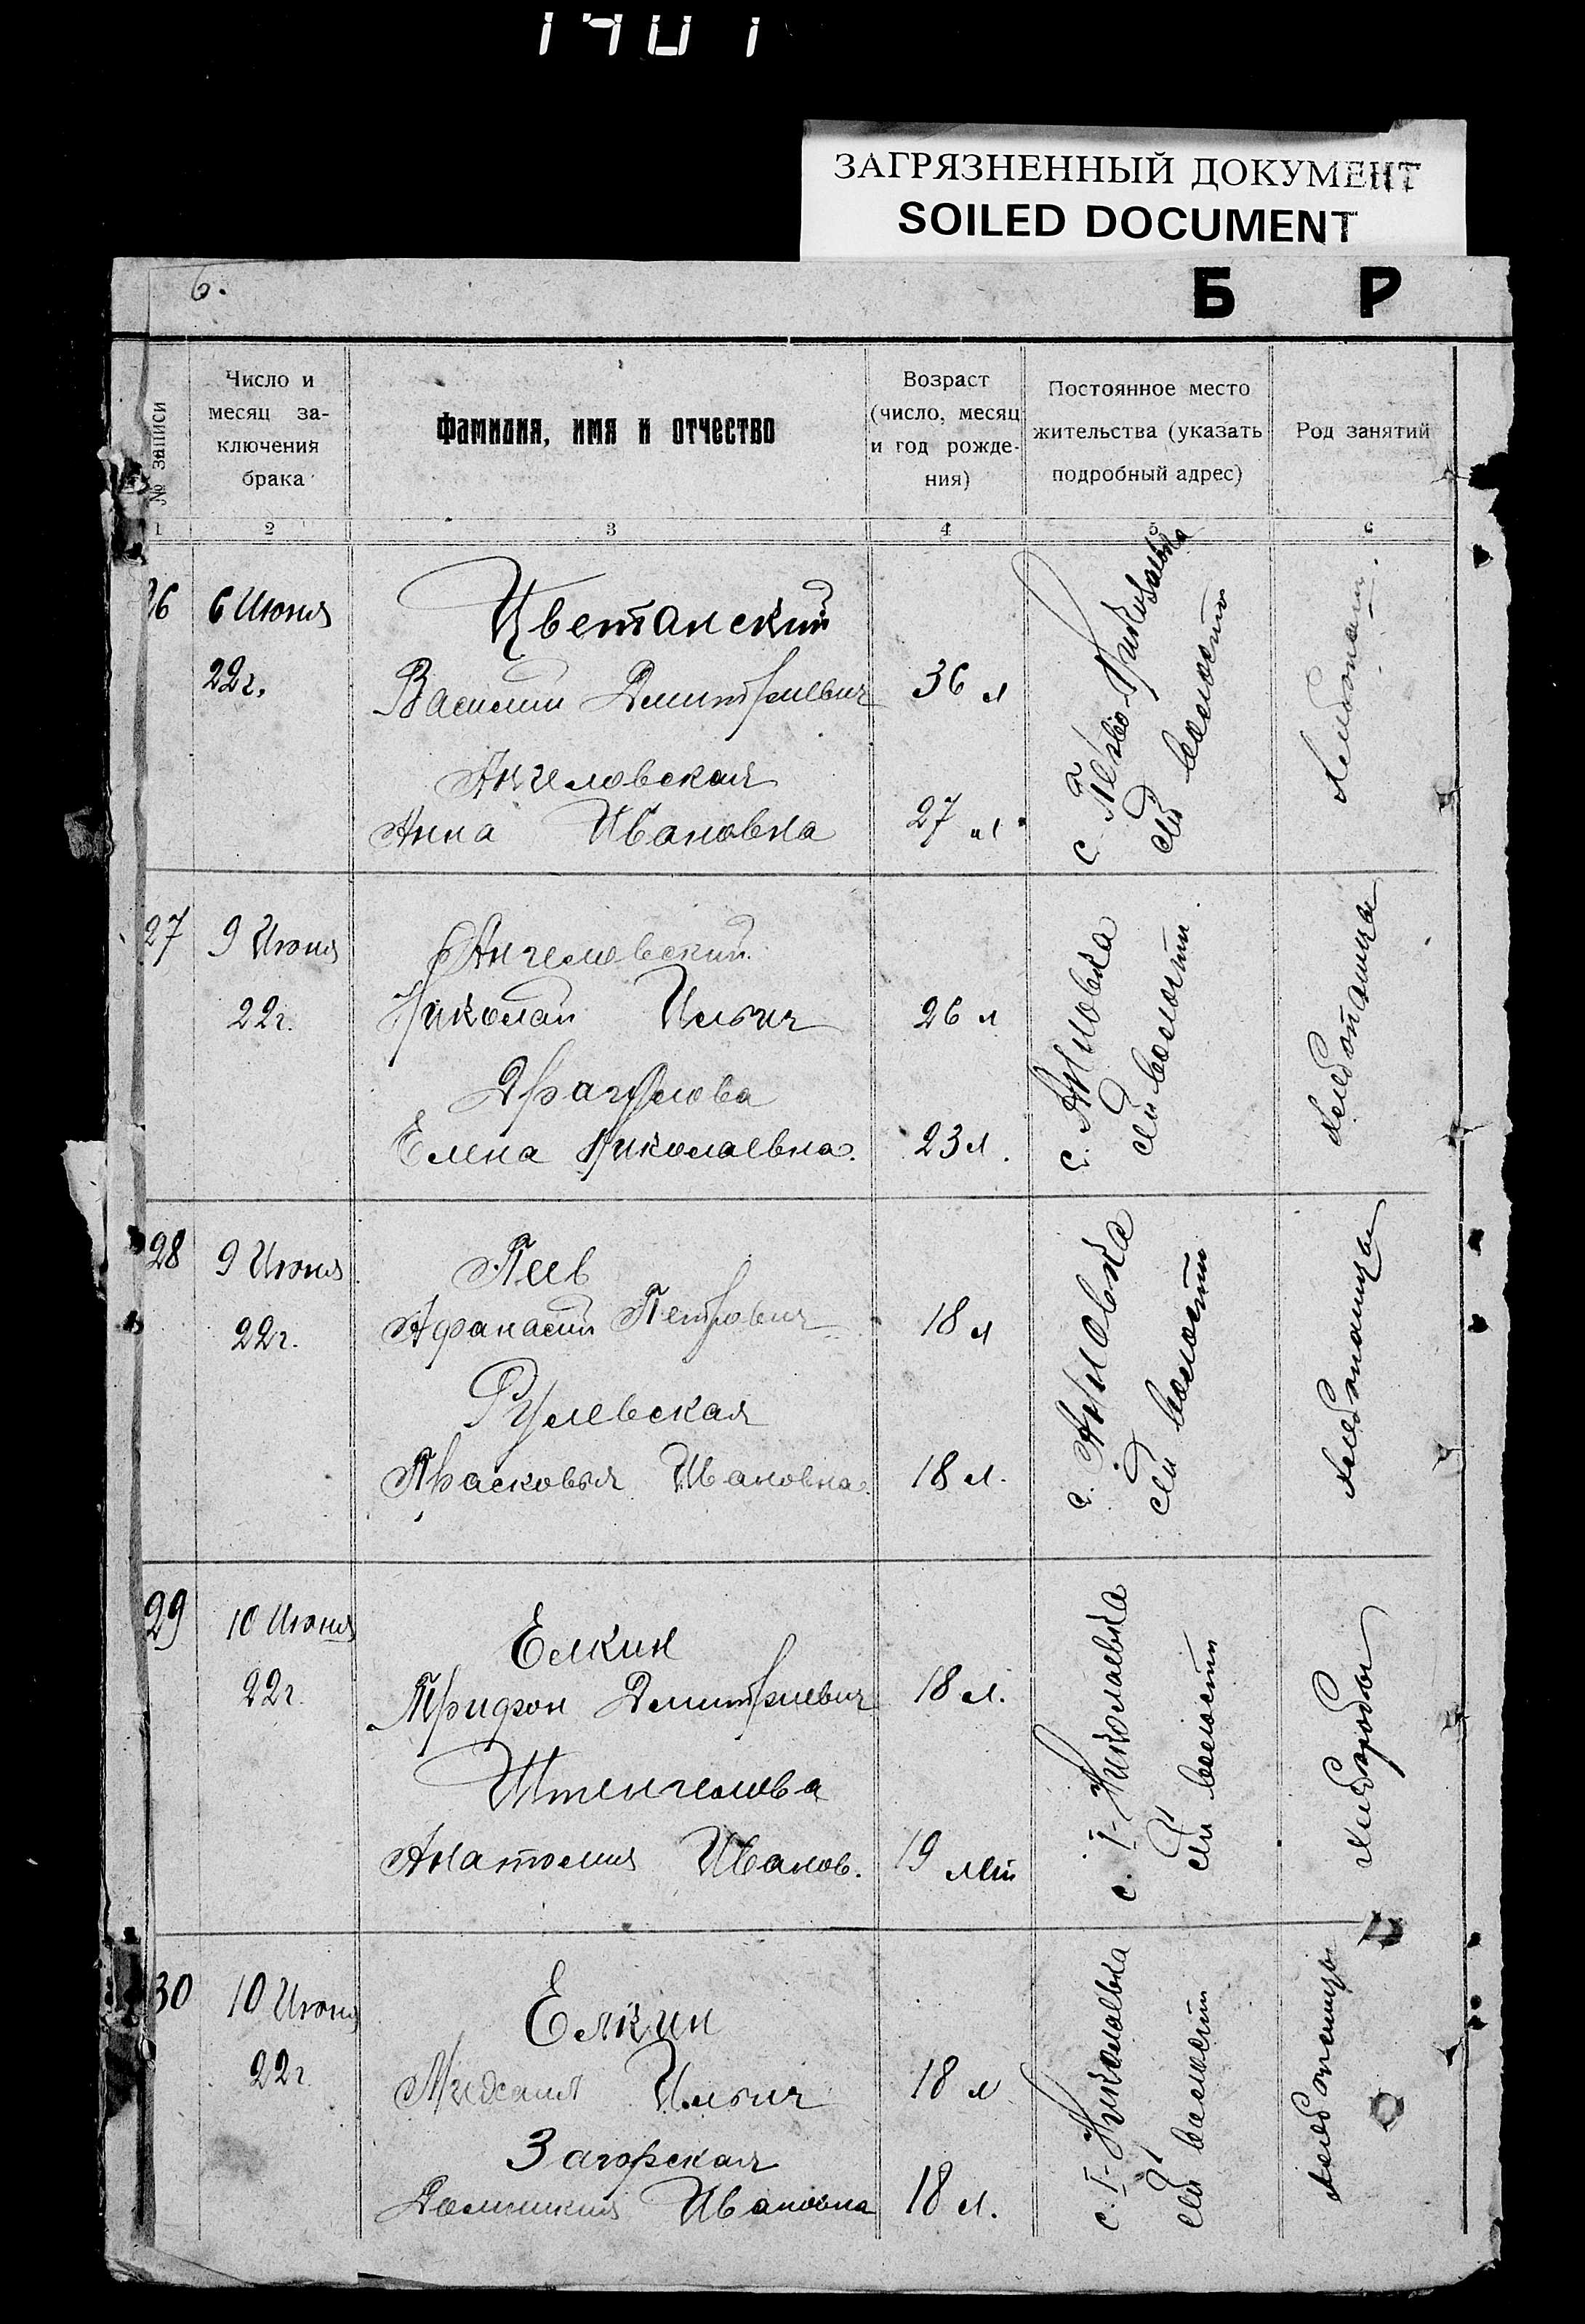 1401
ЗАГРЯЗНЕННЫЙ ДОКУМЕНТ
SOILED DOCUMENT
6.
Б Р
№ записи
Число и месяц за-
ключения
брака
Фамилия, имя и отчество
Возраст
(число, месяц
и год рожде-
ния)
Постоянное место
жительства (указать
подробный адрес)
Род занятий
1 2 3 4 5 6
26
6 Июня
22г.
Цветанский
Василий Дмитриевич
36 л
Ангеловская
Анна Ивановна
27 л.
с. Перво-Николаевка
волости
27
9 Июня
22г.
Ангеловский
Николай Ильич
26 л
Драгулова
Елена Николаевна.
23 л.
волости
Хлебопашцы
28
9 Июня
22г.
Пеев
Афанасий Петрович
18 л
Рулевская
Прасковья Ивановна.
18 л.
волости
Хлебопашцы
29
10 Июня
22г.
Елкин
Трифон Дмитриевич
18 л.
Штенгелова
Анатолия Иванов.
19 лет
с. I-Николаевка
волости
Хлеборобы
30
10 Июня
22г
Елкин
Михаил Ильич
18 л
Загорская
Ивановна
18 л.
с. I-Николаевка
волости
Хлебопашцы